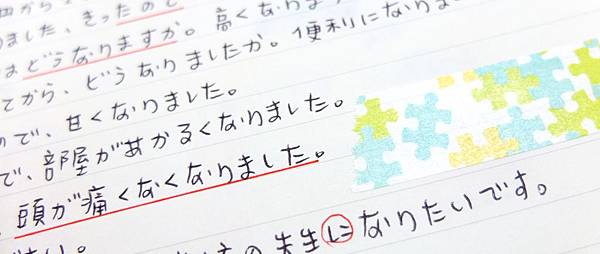 ました、きったのと
はどうなりますか。高くなりま
てから、どうなりましたか。便利になりま
ので、甘くなりました。
で、部屋があかるくなりました。
頭が痛くなくなりました。
の先生になりたいです。